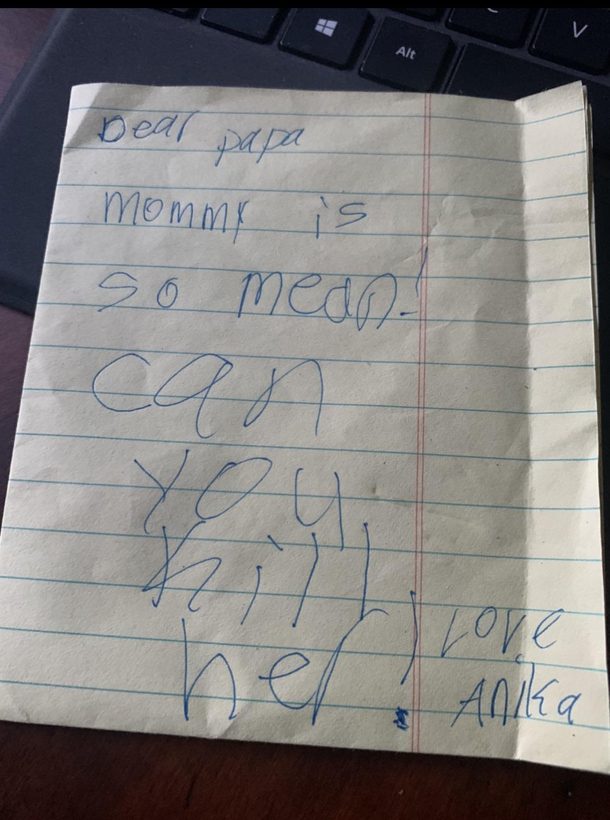 Alt
V
Dear papa
mommy is
so mean!
can
you
kill
her!
Love
Anika